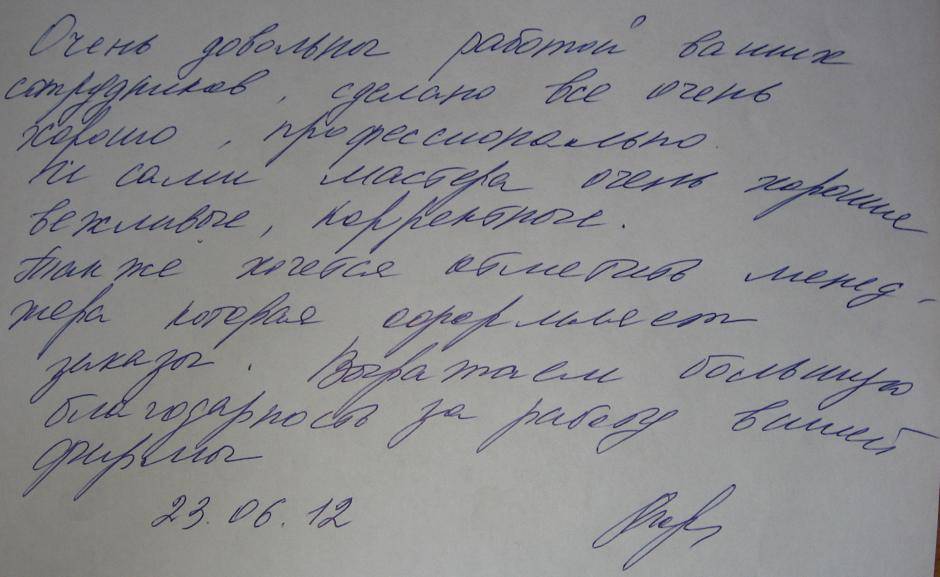 Очень довольны работой ваших
сотрудников, сделано все очень
хорошо, профессионально.
И сами мастера очень хорошие
вежливые, корректные.
Также хочется отметить менед-
жера которая оформляет
заказы. Выражаем большую
благодарность за работу вашей
фирмы
23.06.12